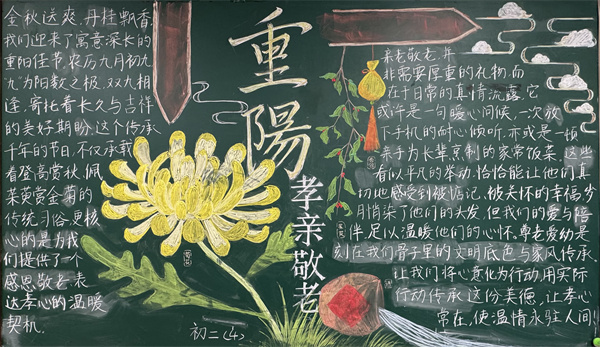 金秋送爽,丹桂飘香,
我们迎来了寓意深长的
重阳佳节。农历九月初九
九"为阳数之极,双九相
逢,寄托着长久与吉祥
的美好期盼。这个传承
千年的节日,不仅承载
着登高赏秋、佩
茱萸赏金菊的
传统习俗,更核
心的是为我
们提供了一个
感恩敬老、表
达孝心的温暖
契机。
重陽
孝亲敬老
初二(4)
亲老敬老,并
非需要厚重的礼物,而
在于日常的真情流露。它
或许是一句暖心问候,一次放
下手机的耐心倾听,亦或是一顿
亲手为长辈烹制的家常饭菜。这些
看似平凡的举动,恰恰能让他们真
切地感受到被惦记、被关怀的幸福。岁
月悄染了他们的头发,但我们的爱与陪
伴,足以温暖他们的心怀。尊老爱幼是
刻在我们骨子里的文明底色与家风传承。
让我们将心意化为行动,用实际
行动传承这份美德,让孝心
常在,使温情永驻人间!